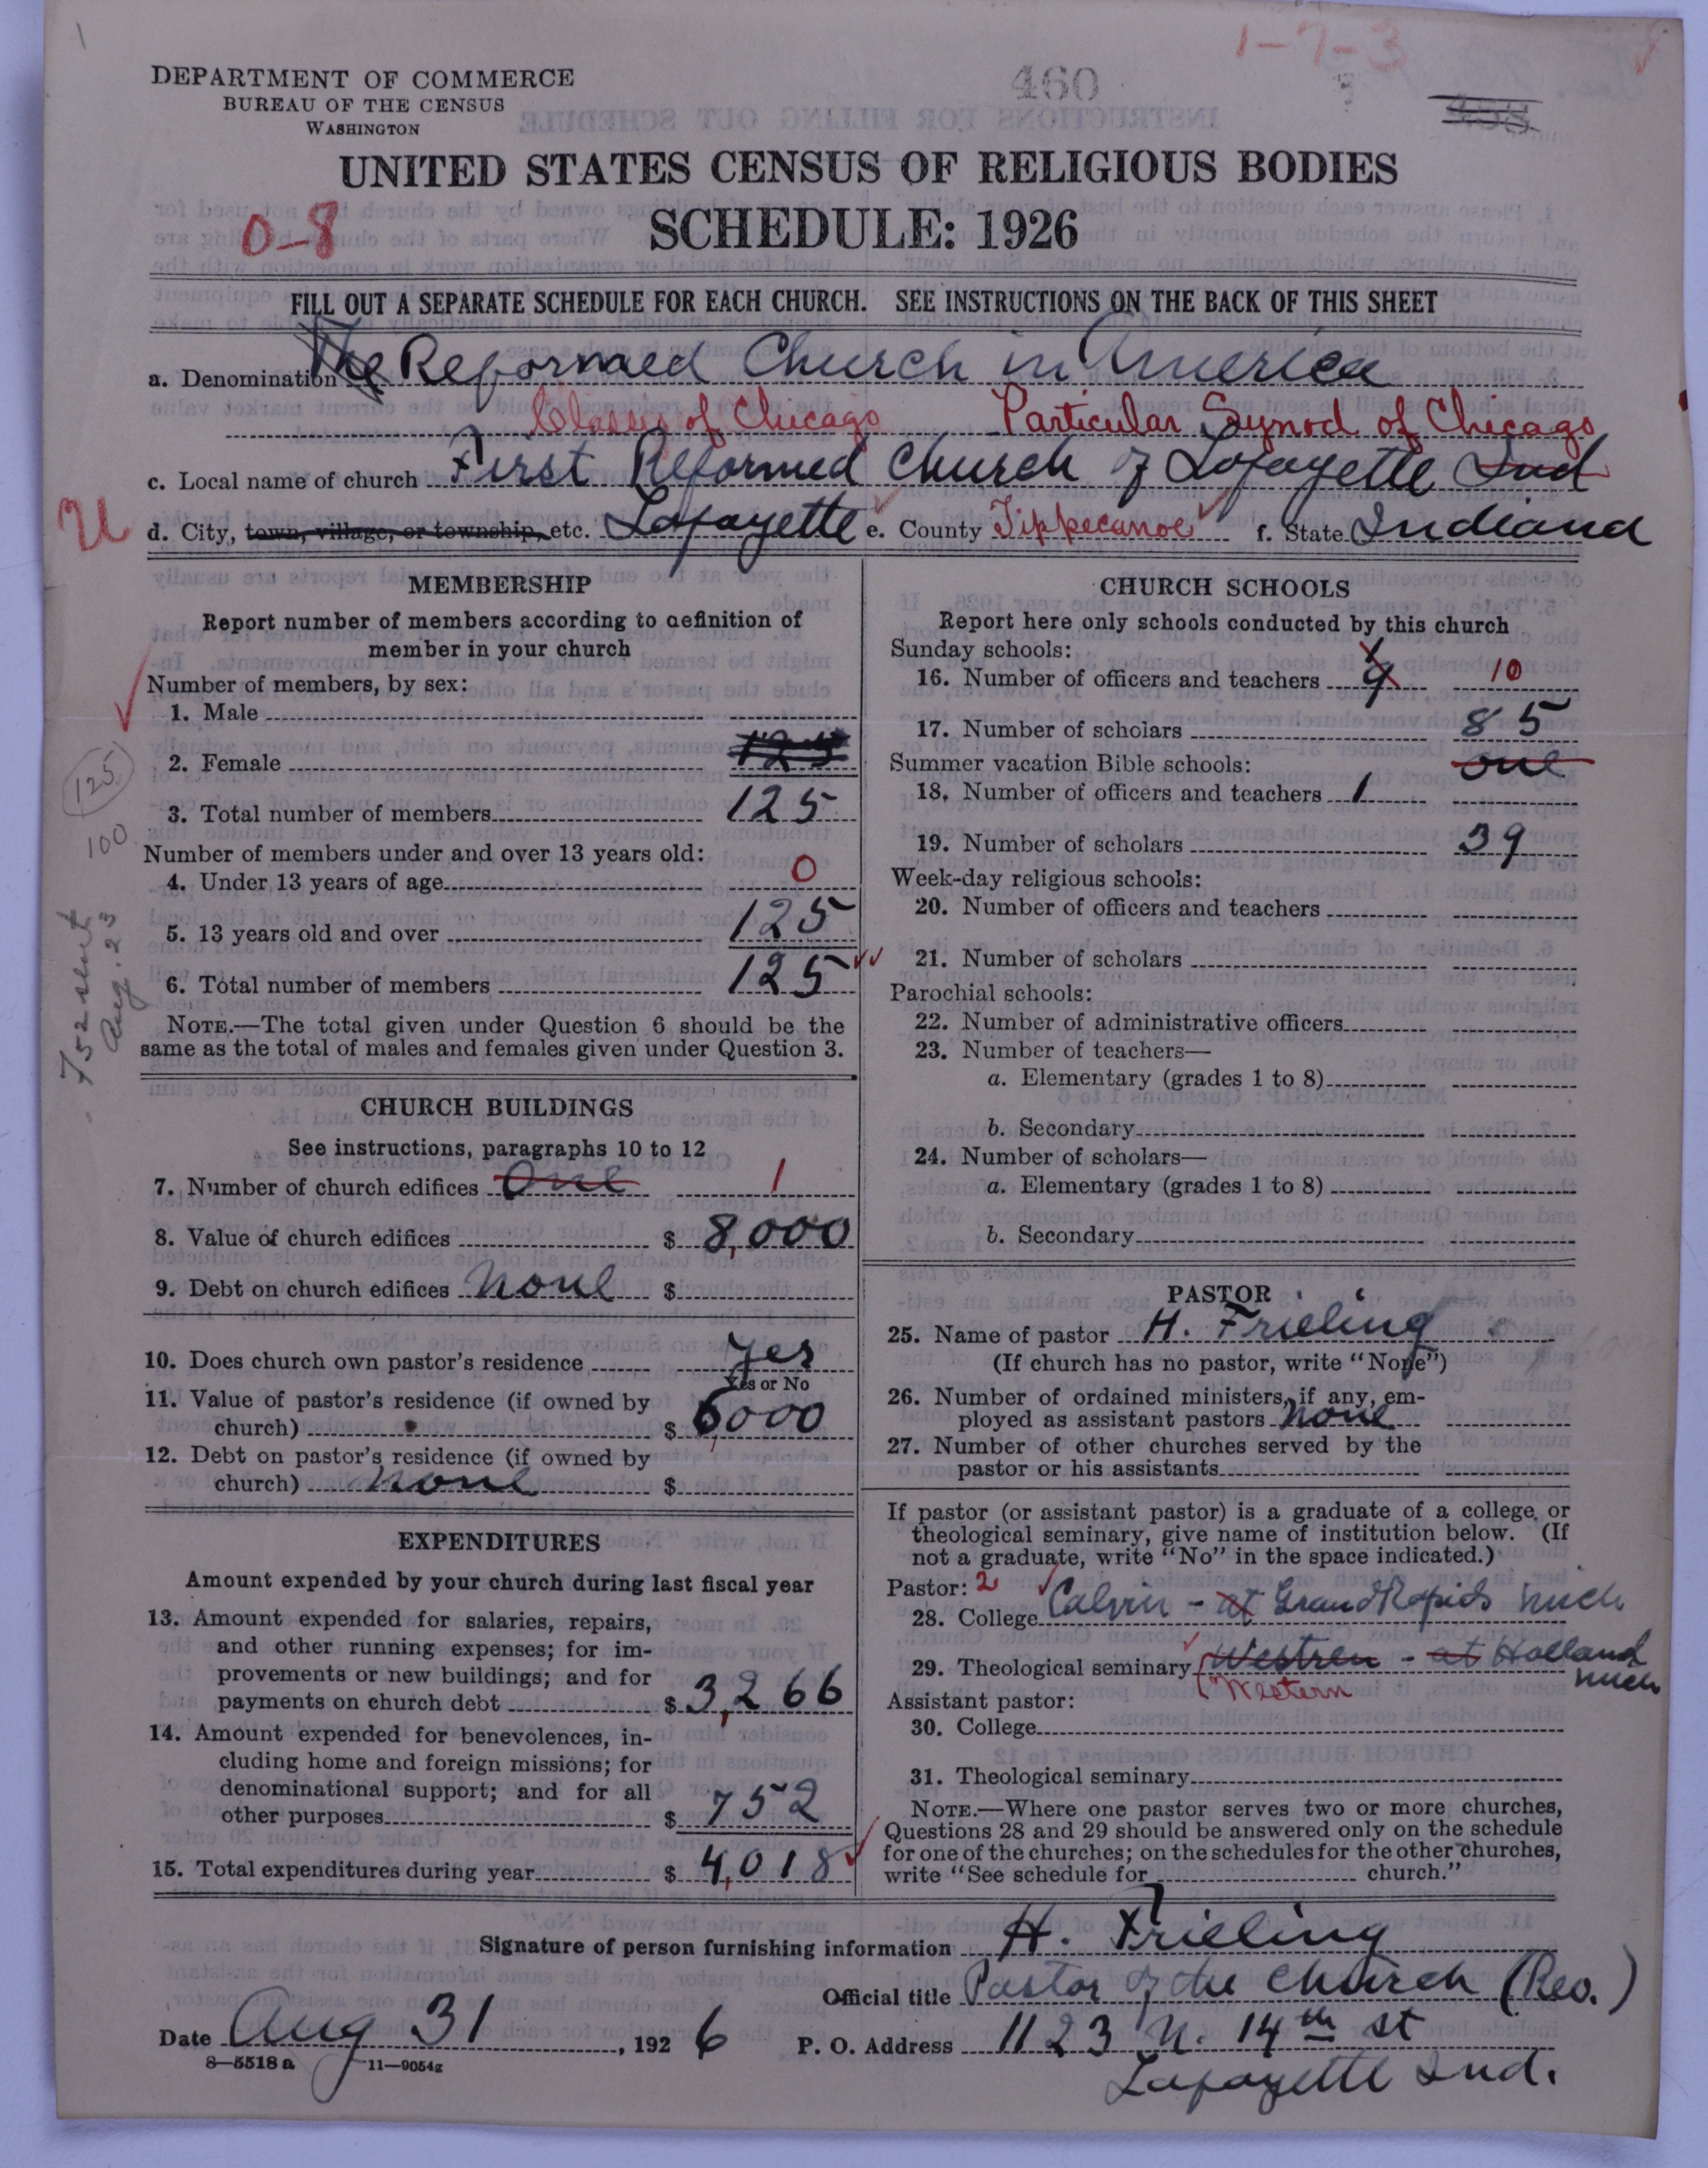 1-7-3
DEPARTMENT OF COMMERCE
BUREAU OF THE CENSUS
WASHINGTON
460
UNITED STATES CENSUS OF RELIGIOUS BODIES
SCHEDULE: 1926
0-8
FILL OUT A SEPARATE SCHEDULE FOR EACH CHURCH. SEE INSTRUCTIONS ON THE BACK OF THIS SHEET
a. Denomination The Reformed Church in America
Classis of Chicago Particular Synod of Chicago
c. Local name of church First Reformed Church of Lafayette Ind
U
d. City, town, village, or township, etc. Lafayette e. County Tippecanoe f. State Indiana
MEMBERSHIP
Report number of members according to definition of
member in your church
Number of members, by sex:
1. Male
2. Female 125
3. Total number of members 125
125
100
Number of members under and over 13 years old:
4. Under 13 years of age 0
5. 13 years old and over 125
6. Total number of members 125
752 sent
Aug. 23
NOTE.—The total given under Question 6 should be the
same as the total of males and females given under Question 3.
CHURCH BUILDINGS
See instructions, paragraphs 10 to 12
7. Number of church edifices One 1
8. Value of church edifices $ 8,000
9. Debt on church edifices None $
10. Does church own pastor's residence Yes
Yes or No
11. Value of pastor's residence (if owned by
church) $ 6,000
12. Debt on pastor's residence (if owned by
church) None $
EXPENDITURES
Amount expended by your church during last fiscal year
13. Amount expended for salaries, repairs,
and other running expenses; for im-
provements or new buildings; and for
payments on church debt $ 3,266
14. Amount expended for benevolences, in-
cluding home and foreign missions; for
denominational support; and for all
other purposes $ 752
15. Total expenditures during year $ 4,018
CHURCH SCHOOLS
Report here only schools conducted by this church
Sunday schools:
16. Number of officers and teachers 9 10
17. Number of scholars 85
Summer vacation Bible schools: one
18. Number of officers and teachers 1
19. Number of scholars 39
Week-day religious schools:
20. Number of officers and teachers
21. Number of scholars
Parochial schools:
22. Number of administrative officers
23. Number of teachers—
a. Elementary (grades 1 to 8)
b. Secondary
24. Number of scholars—
a. Elementary (grades 1 to 8)
b. Secondary
PASTOR
25. Name of pastor H. Frieling
(If church has no pastor, write "None")
26. Number of ordained ministers, if any, em-
ployed as assistant pastors None
27. Number of other churches served by the
pastor or his assistants
If pastor (or assistant pastor) is a graduate of a college, or
theological seminary, give name of institution below. (If
not a graduate, write "No" in the space indicated.)
Pastor: 2
28. College Calvin - at Grand Rapids Mich
29. Theological seminary Westren - at Holland
Mich
Western
Assistant pastor:
30. College
31. Theological seminary
NOTE.—Where one pastor serves two or more churches,
Questions 28 and 29 should be answered only on the schedule
for one of the churches; on the schedules for the other churches,
write "See schedule for church."
Signature of person furnishing information H. Frieling
Official title Pastor of the Church (Rev.)
Date Aug 31, 1926 P. O. Address 1123 N. 14th St
8—5518 a 11—9054g
Lafayette Ind.